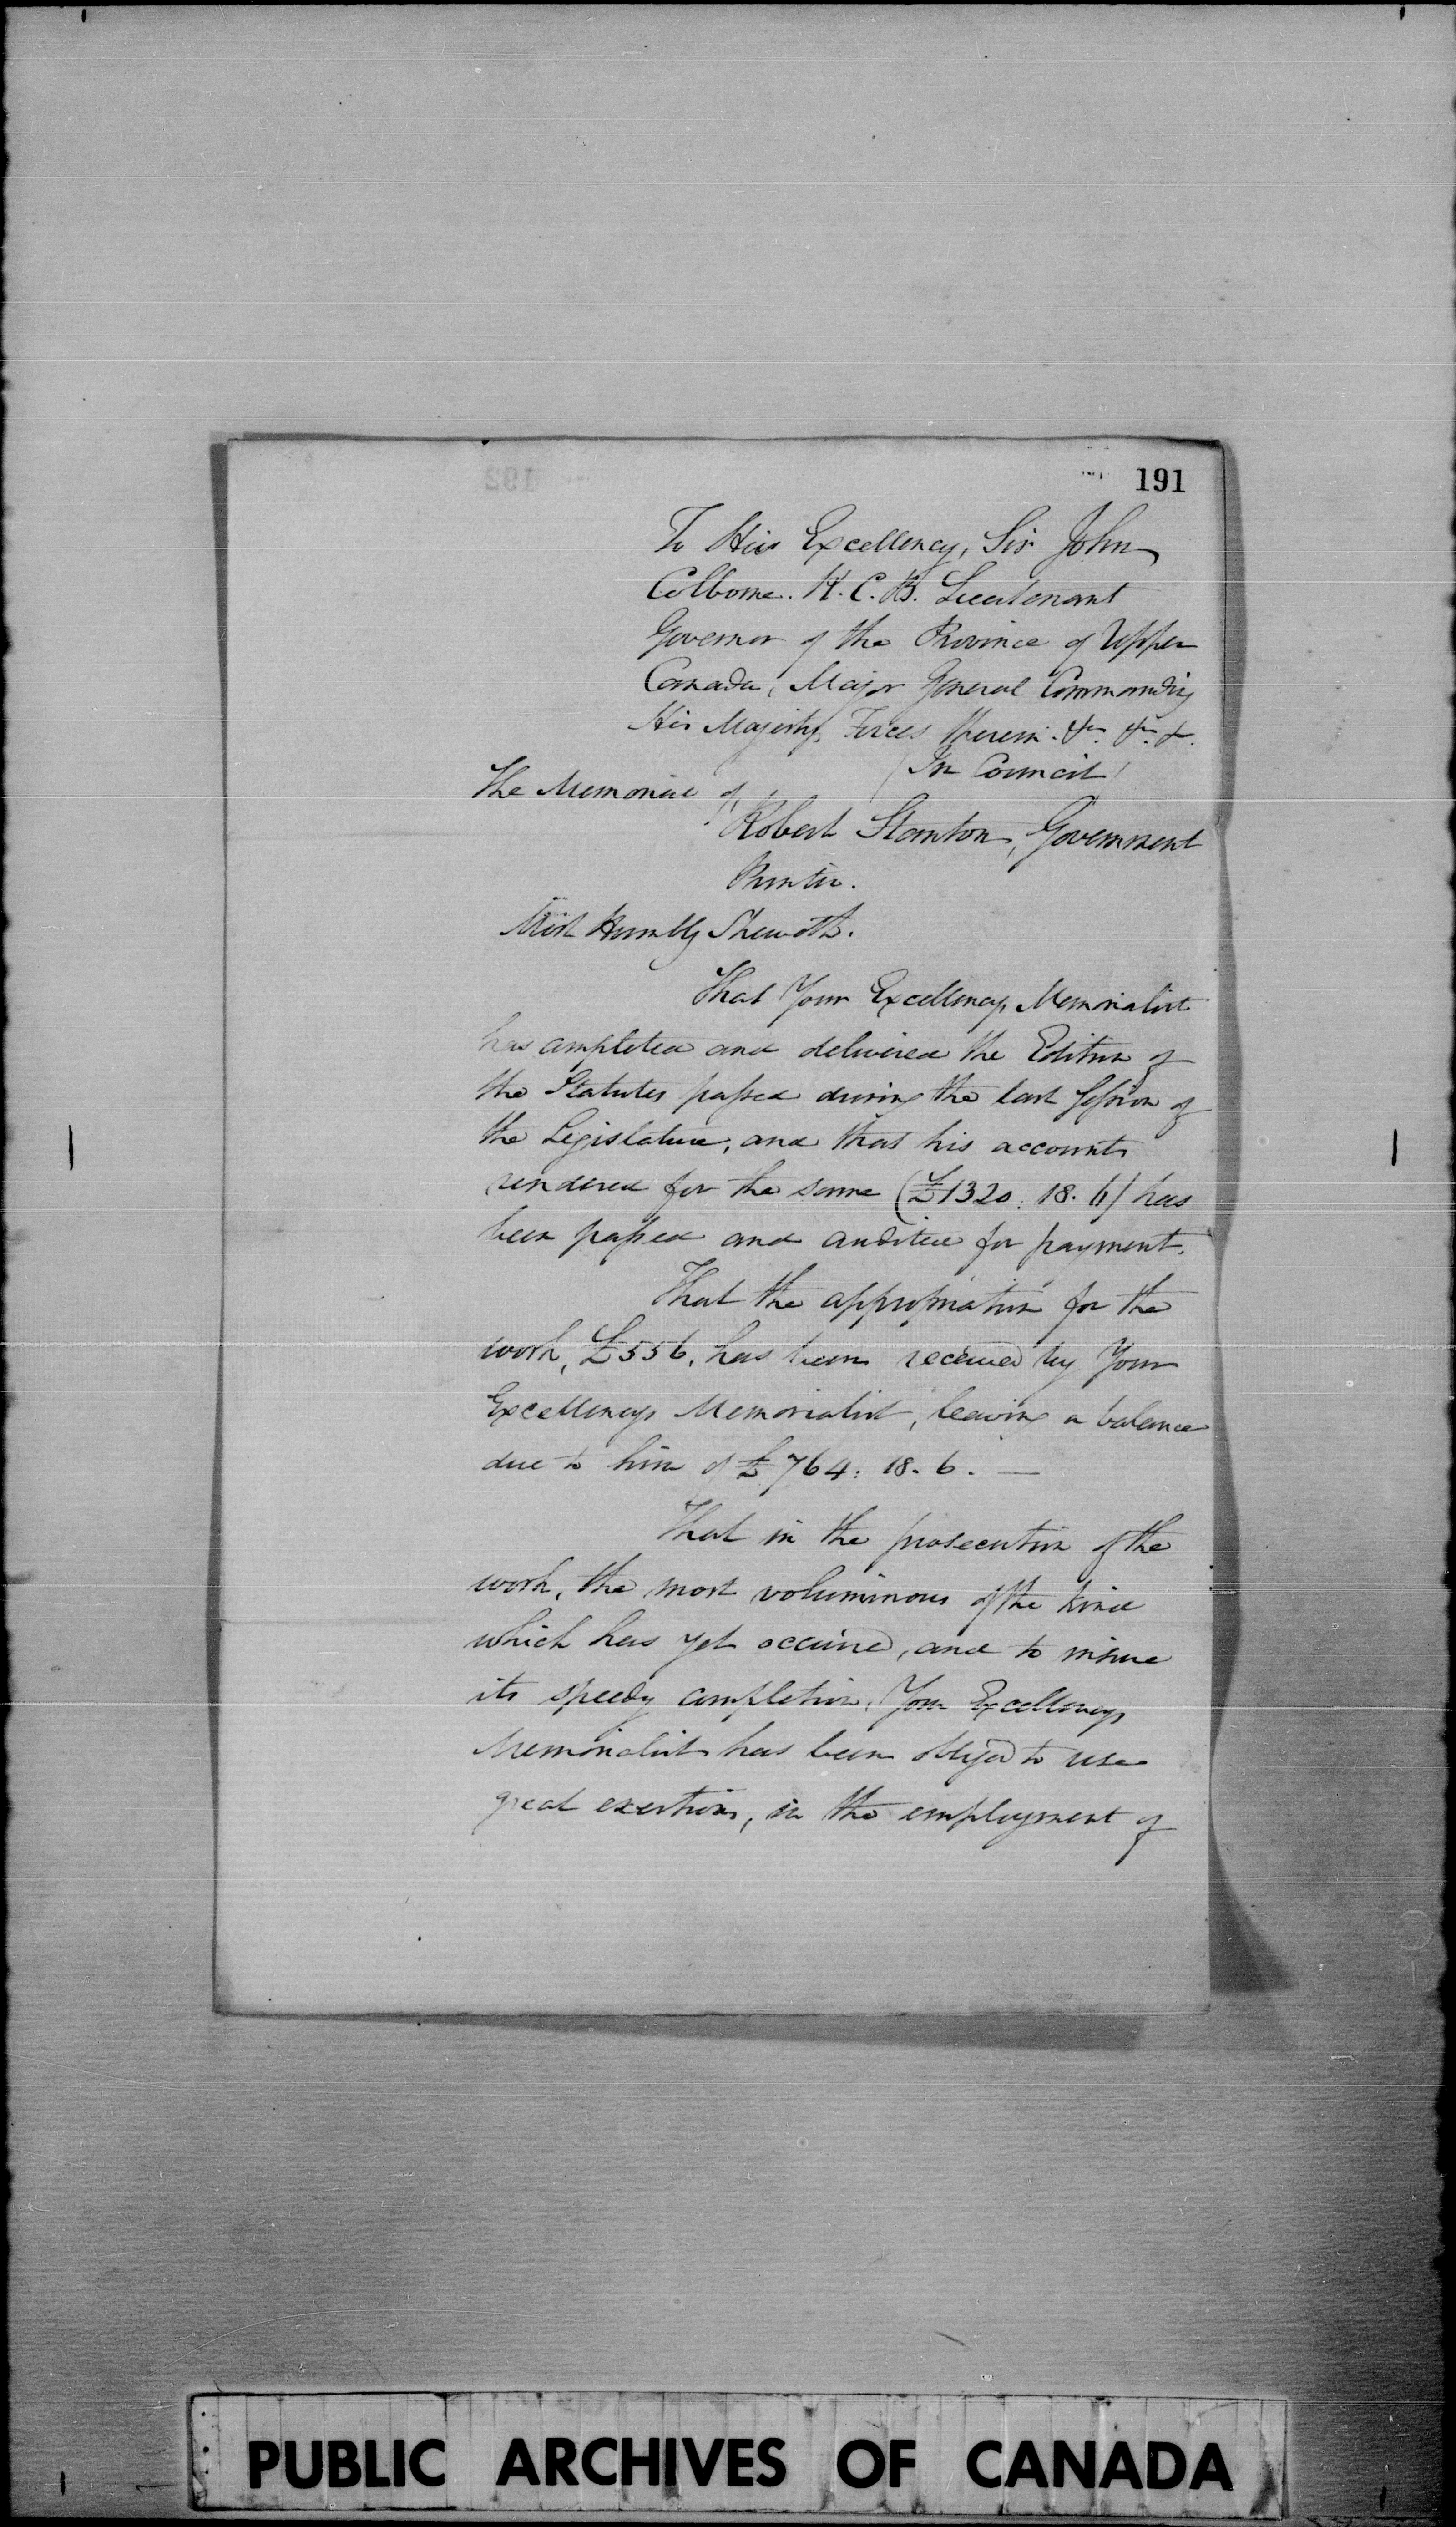 191
To His Excellency, Sir John
Colborne. K.C.B. Lieutenant
Governor of the Province of Upper
Canada, Major General Commanding
His Majestys Forces therein. &c. &c. &c.
(In Council)
The Memorial of
Robert Stanton, Government
Printer.
Most Humbly Sheweth.
That Your Excellencys Memorialist
has completed and delivered the Edition of
the Statutes passed during the last Session of
the Legislature, and that his accounts
rendered for the same (£1320. 18. 6) has
been passed and audited for payment.
That the appropriation for the
work, £556. has been received by Your
Excellencys Memorialist, leaving a balance
due to him of £764: 18. 6. —
That in the prosecution of the
work, the most voluminous of the kind
which has yet occurred, and to insure
its speedy completion, Your Excellencys
Memorialist has been obliged to use
great exertions, in the employment of
PUBLIC ARCHIVES OF CANADA